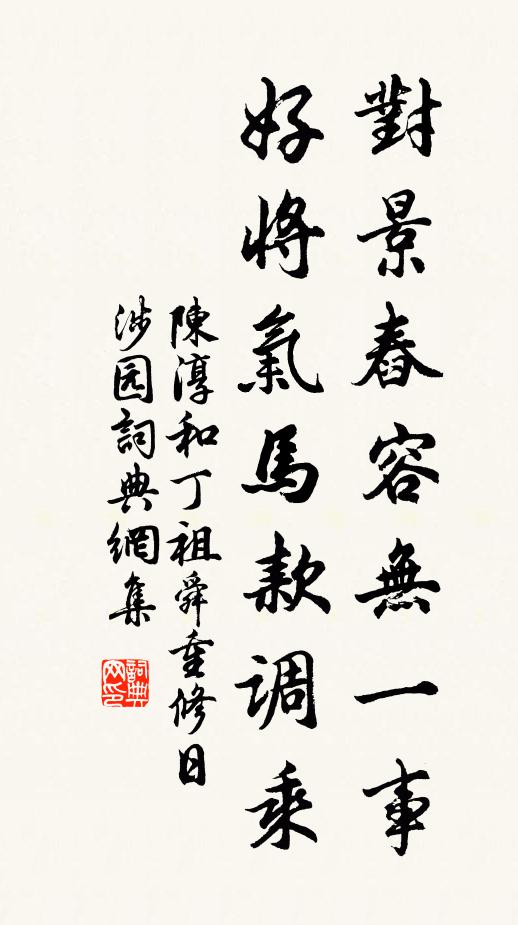 對景春容無一事
好將氣馬款調乘
陳淳和丁祖舜重修日
涉园詞典網集
詞典网印